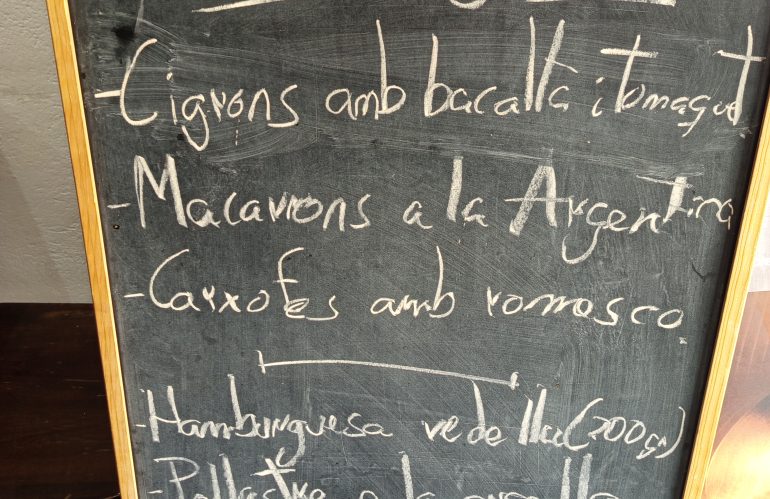 - Cigrons amb bacallà i tomaquet
- Macarrons a la Argentina
- Carxofes amb romesco
- Hamburguesa vedella (200gr)
- Pollastre a la